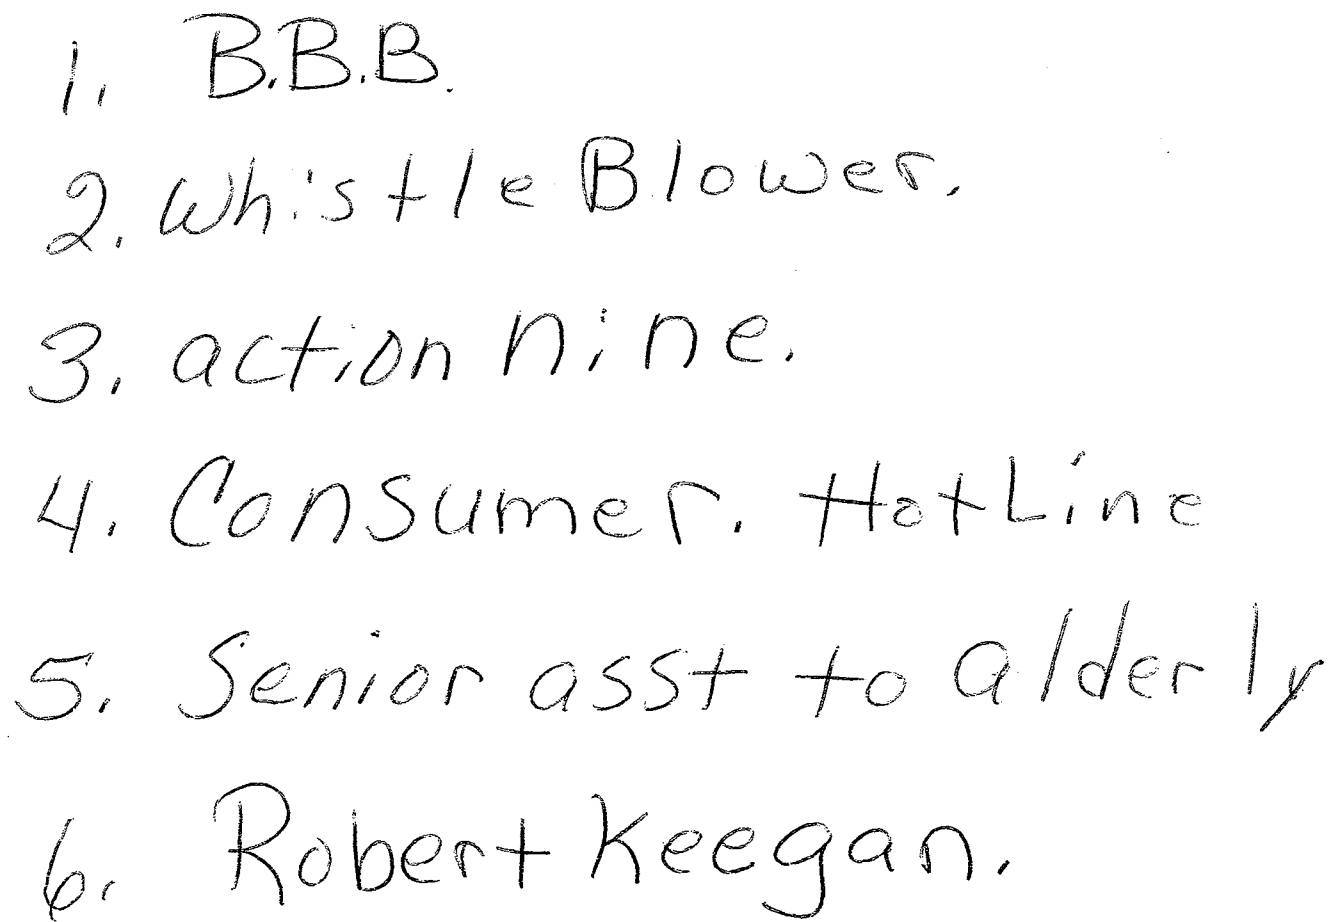 1. B.B.B.
2. Whistle Blower.
3. action nine.
4. Consumer. HotLine
5. Senior asst to alderly
6. Robert Keegan.